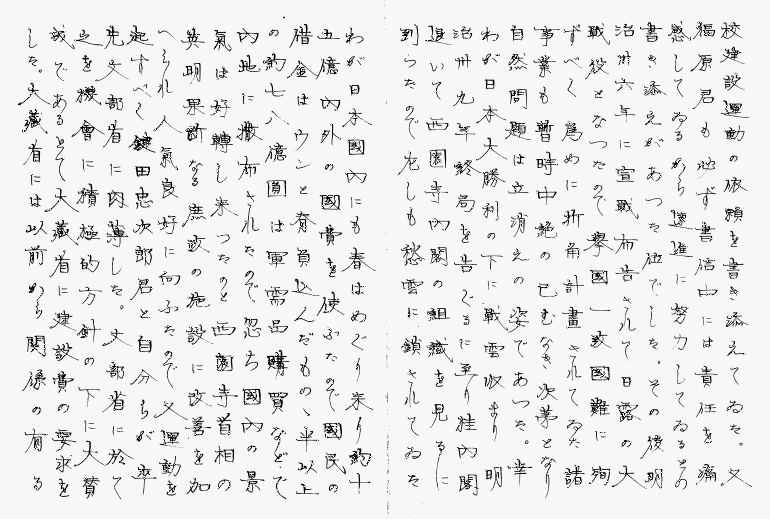 校建設運動の依頼を書き添えてゐた。又
福原君も必ず書信中には責任を痛
感してゐるから速進に努力してゐるとの
書き添えがあつた位でした。その後明
治卅六年に宣戦布告されて日露の大
戦役となつたので挙國一致國難に殉
ずべく為めに折角計畫されてゐた諸
事業も暫時中絶の已むなき次第となり
自然問題は立消えの姿であつた。幸
わが日本大勝利の下に戦雲収まり明
治卅九年終局を告ぐるに至り桂内閣
退いて西園寺内閣の組織を見るに
到らたので九しも愁雲に鎖されてゐた
わが日本國内にも春はめぐり来り約十
五億内外の國費を使ふたので國民の
借金はウンと脊負込んだものゝ半以上
の約七八億圓は軍需品購買などで
内地に撒布されたので忽ち國内の景
氣は好轉し来つたのと西園寺首相の
英明果断なる庶政の施設に改善を加
へられ人氣良好に向ふたので又運動を
起すべく鎌田忠次郎君と自分らが率
先文部省に肉薄した。文部省に於て
之を機會に積極的方針の下に大賛
成であるとて大藏省に建設費の要求を
した。大藏省には以前から関係の有る